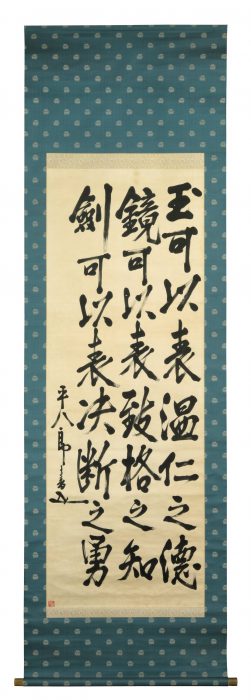 玉可以表温仁之德
鏡可以表致格之知
劍可以表決断之勇
平八郎書